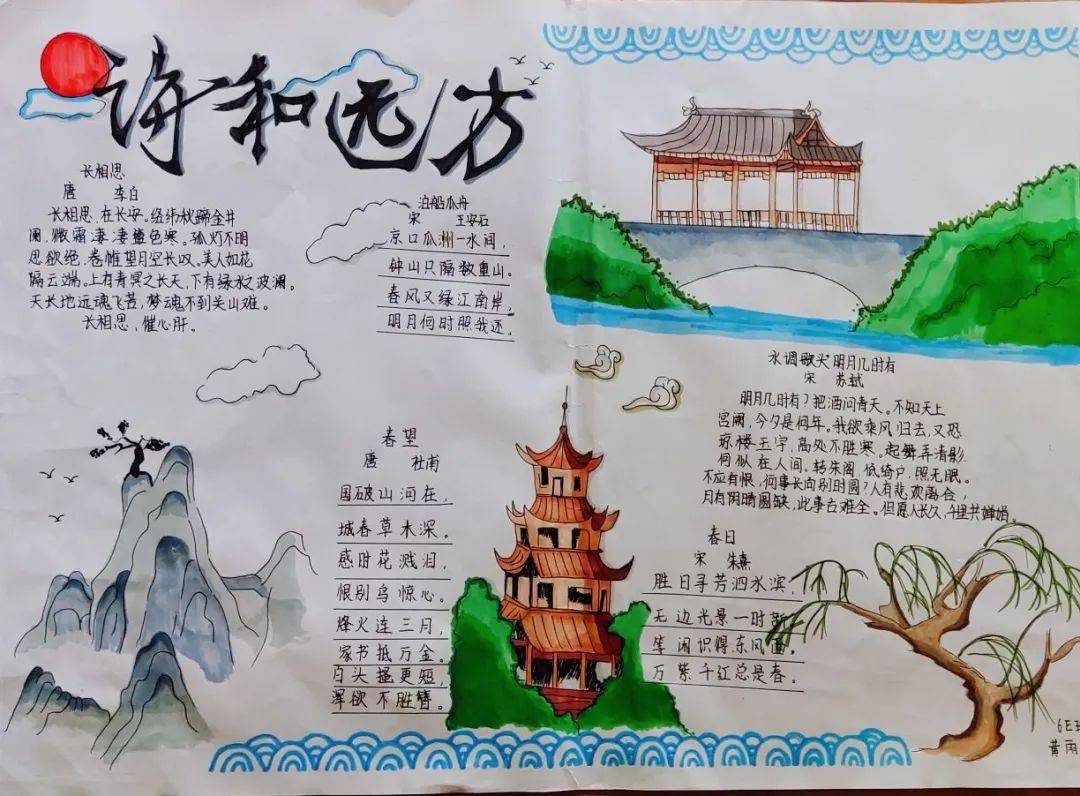 诗和远方
长相思
唐 李白
长相思,在长安。络纬秋蹄金井
阑,微霜凄凄簟色寒。孤灯不明
思欲绝,卷帷望月空长叹。美人如花
隔云端。上有青冥之长天,下有绿水之波澜。
天长地远魂飞苦,梦魂不到关山难。
长相思,催心肝。
泊船瓜舟
宋 王安石
京口瓜洲一水间,
钟山只隔数重山。
春风又绿江南岸,
明月何时照我还。
春望
唐 杜甫
国破山河在,
城春草木深。
感时花溅泪,
恨别鸟惊心。
烽火连三月,
家书抵万金。
白头搔更短,
浑欲不胜簪。
水调歌头 明月几时有
宋 苏轼
明月几时有?把酒问青天。不知天上
宫阙,今夕是何年。我欲乘风归去,又恐
琼楼玉宇,高处不胜寒。起舞弄清影,
何似在人间。转朱阁,低绮户,照无眠。
不应有恨,何事长向别时圆?人有悲欢离合,
月有阴晴圆缺,此事古难全。但愿人长久,千里共婵娟。
春日
宋 朱熹
胜日寻芳泗水滨,
无边光景一时新
等闲识得东风面。
万紫千红总是春。
6E班
黄雨